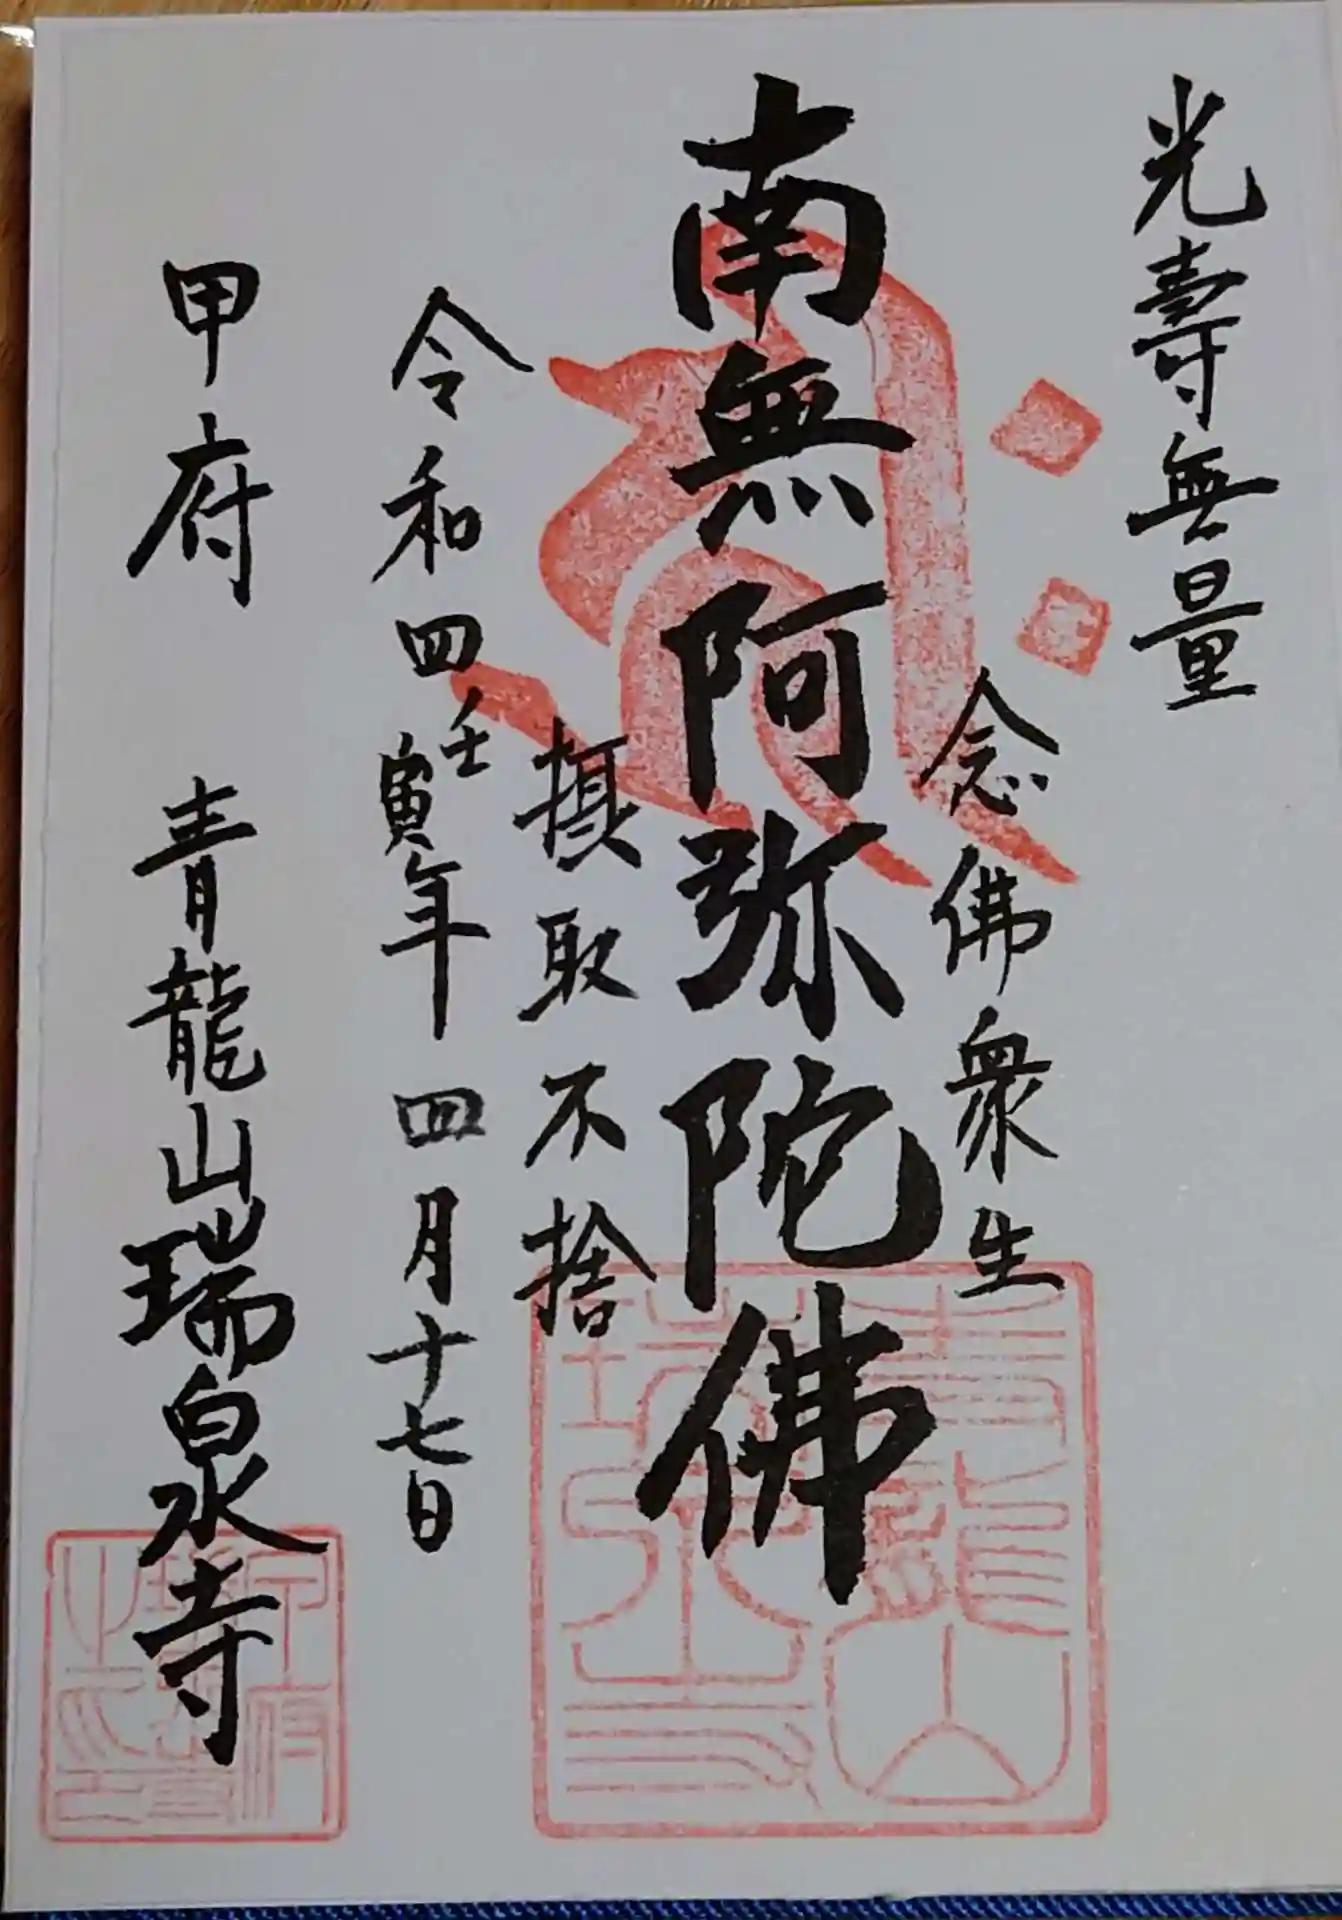 光壽無量
念佛衆生
南無阿弥陀佛
摂取不捨
令和四壬寅年四月十七日
甲府 青龍山瑞泉寺
青龍山
瑞泉寺
甲府